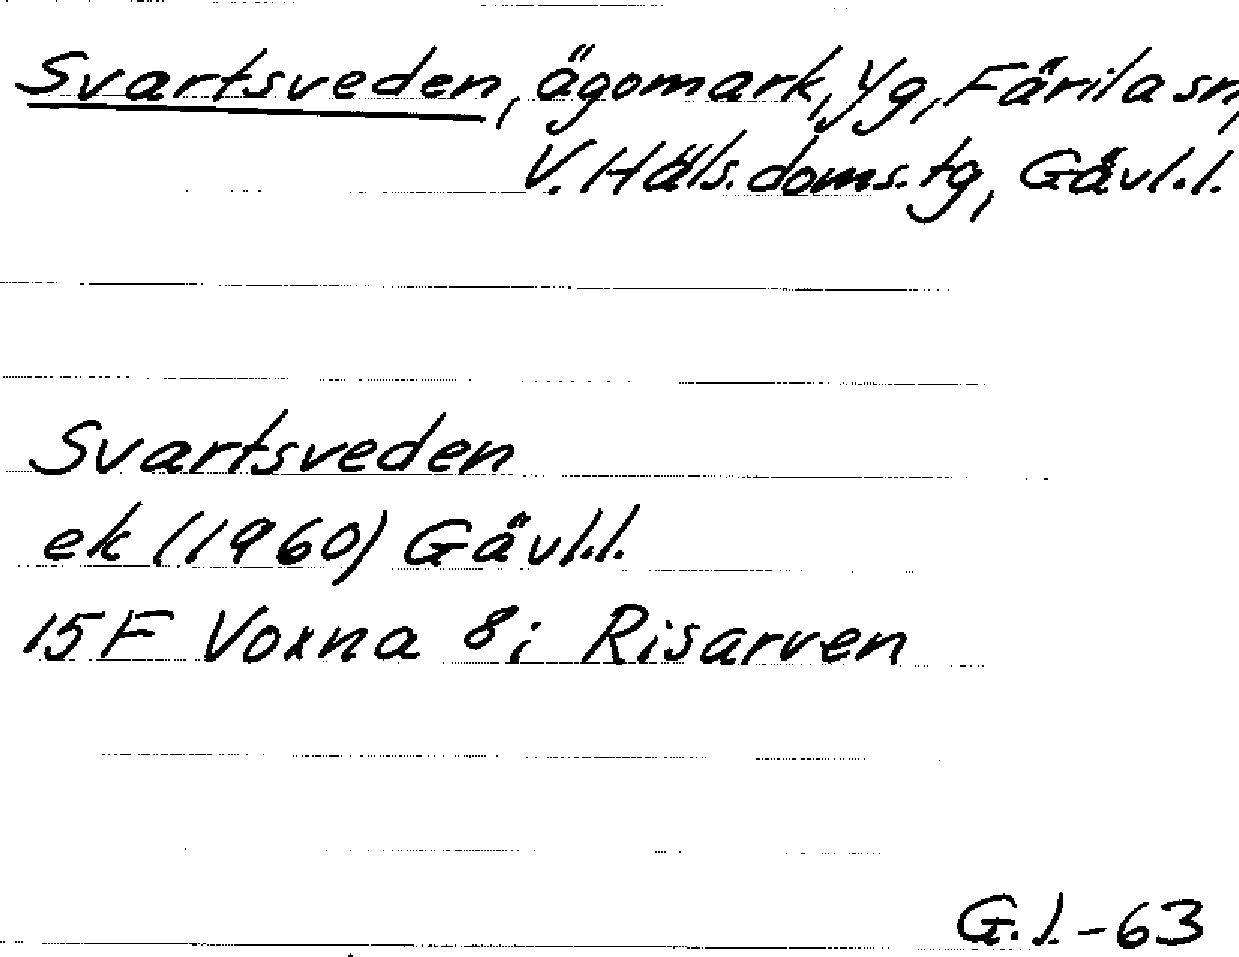 Svartsveden, ägomark, Yg, Färila sn,
V. Häls. doms. tg, Gävl. l.
Svartsveden
ek (1960) Gävl. l.
15F Voxna 8i Risarven
G. l. - 63